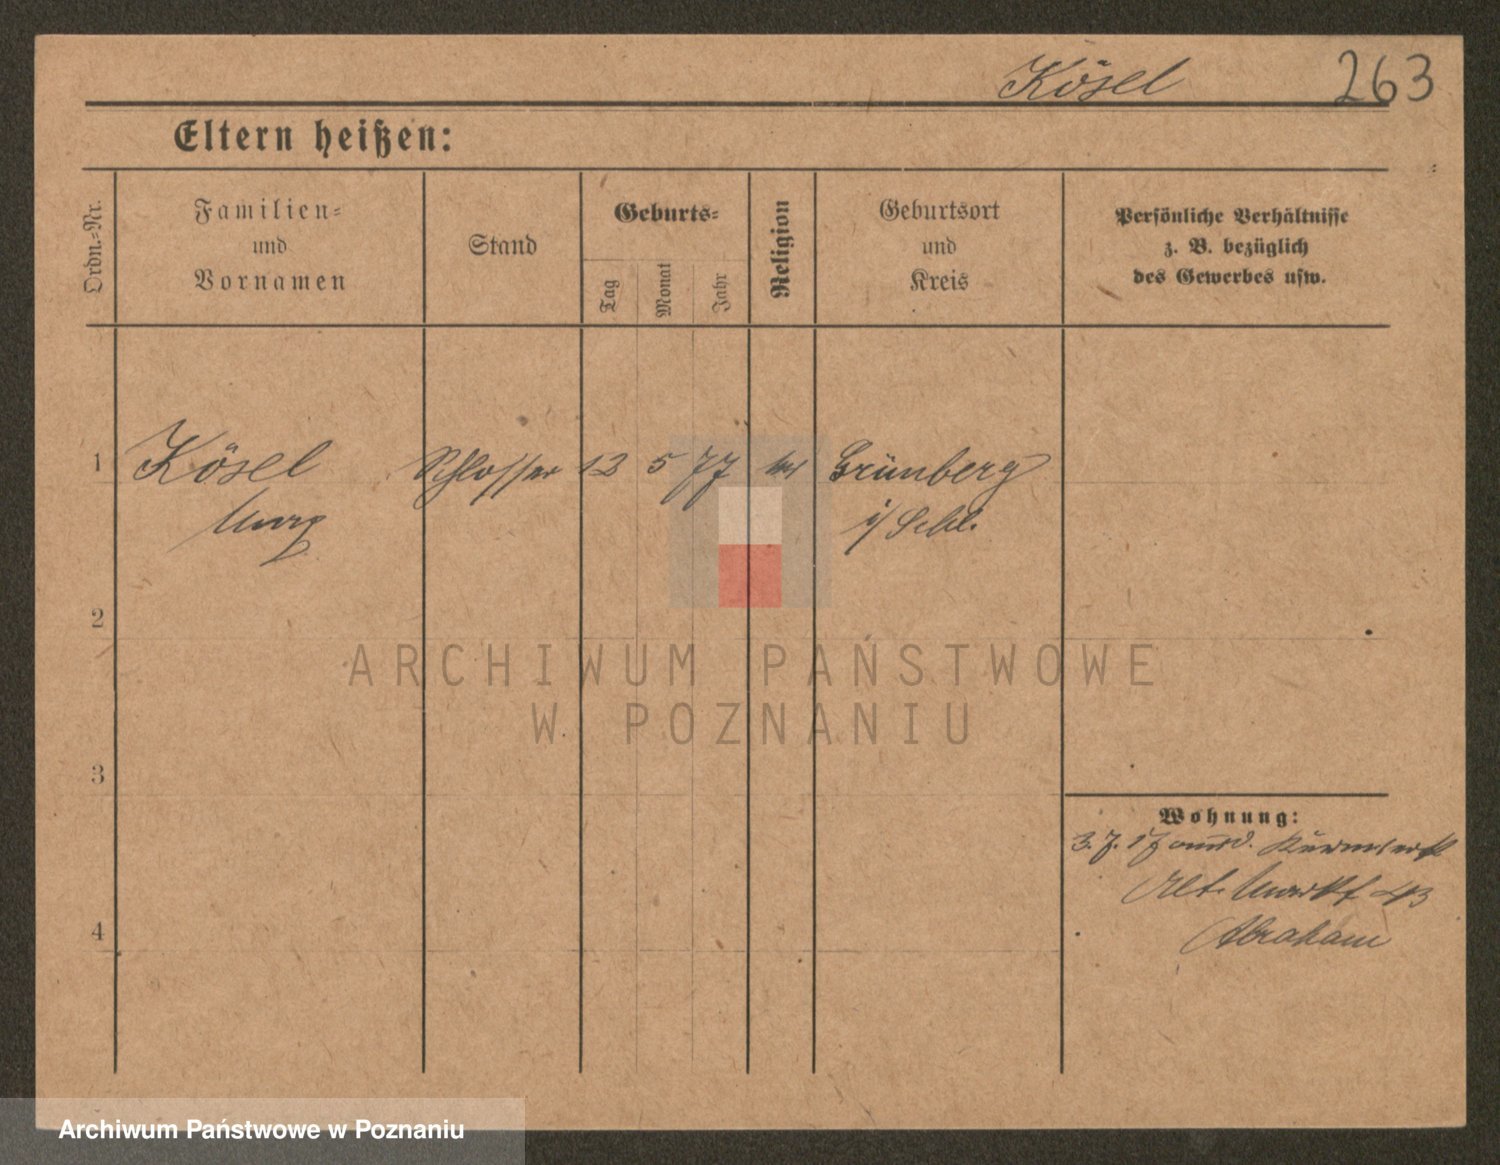 Kösel 263
Eltern heißen:
Ordn.-Nr.
Familien-
und
Vornamen
Stand
Geburts-
Tag
Monat
Jahr
Religion
Geburtsort
und
Kreis
Persönliche Verhältnisse
z. B. bezüglich
des Gewerbes usw.
1 Kösel Schlosser 13 5 77 Grünberg
Max i/ Schl.
2
3
4
Wohnung:
3. 7. 17
Alt. Markt 43
Abraham
ARCHIWUM PAŃSTWOWE
W POZNANIU
Archiwum Państwowe w Poznaniu